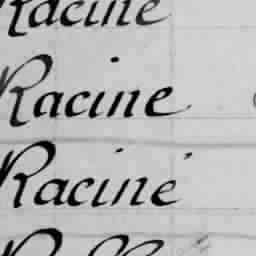 Racine
Racine
Racine